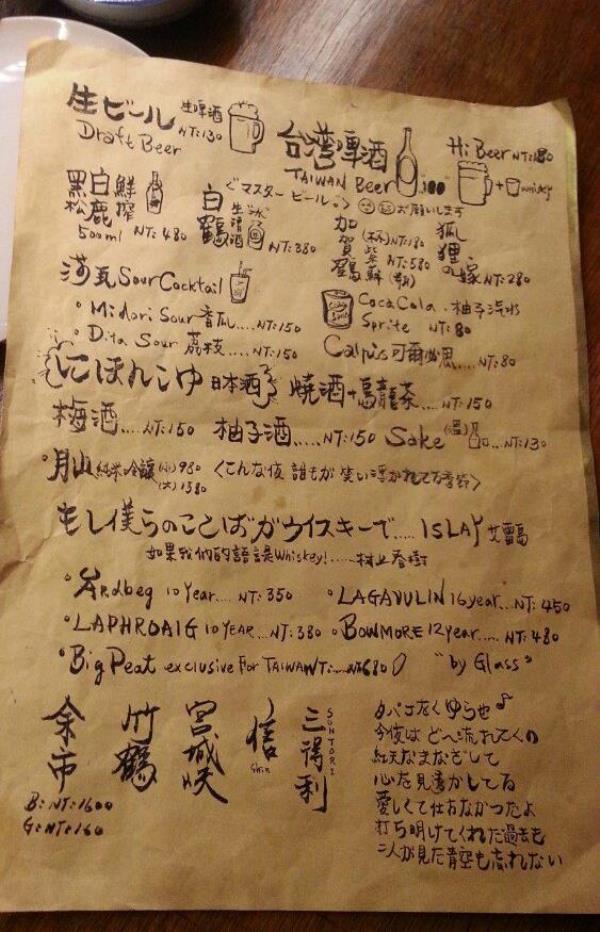 生ビール 生啤酒 NT:130
Draft Beer
台湾啤酒
TAIWAN Beer 100
Hi Beer NT:180
+ whisky
黑松 白鹿 鮮搾
500ml NT:480
<マスタービール> お願いします
白鶴 生清酒 NT:380
加賀鶴 紫蘇
(杯)NT:180
NT:580
狐狸の嫁 NT:280
Sour Cocktail
Midori Sour 香瓜....NT:150
Dita Sour 荔枝....NT:150
Coca Cola . 柚子汽水
Sprite NT:80
Calpis 可爾必思....NT:80
日本酒 焼酒+烏龍茶....NT:150
梅酒....NT:150 柚子酒.....NT:150 Sake(温)...NT:130
月山 純米吟釀 (小)980
(大)1380
<こんな夜 誰もが 笑い浮かれてる季節>
もし僕らのことばがウイスキーで.... ISLAY 艾雷島
如果我們的語言是Whiskey!.....村上春樹
Ardbeg 10 Year.... NT:350
LAGAVULIN 16year...NT:450
LAPHROAIG 10 YEAR...NT:380
BOWMORE 12year.... NT:480
Big Peat exclusive For TAIWAN ...NT:680 "by Glass"
余市
竹鶴
宮城峡
信 Shin
三得利 SUNTORI
B:NT:1600
G:NT:160
タバコをくゆらせ
今夜は どこへ流れてくの
なまなざしして
心を見透かしてる
愛しくて仕方なかったよ
打ち明けてくれた過去も
二人が見た青空も忘れない